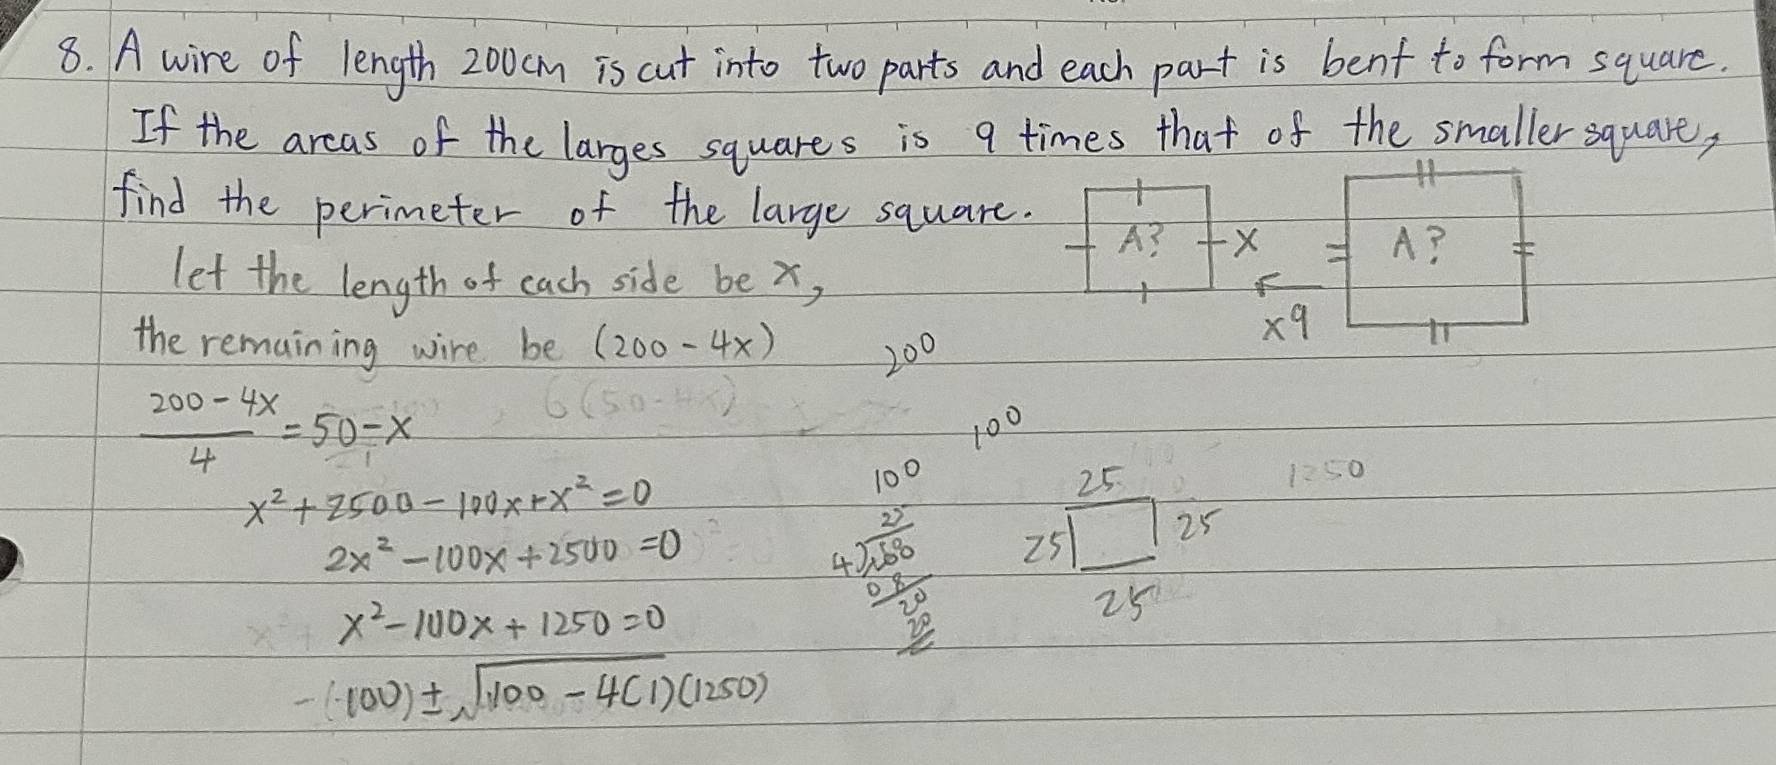 8. A wire of length 200cm is cut into two parts and each part is bent to form square.
If the areas of the larges squares is 9 times that of the smaller square,
find the perimeter of the large square.
A? x A?
x9
let the length of each side be x,
the remaining wire be (200 - 4x)
200
200 - 4x / 4 = 50 - x
6(50-4x)
100
x² + 2500 - 100x + x² = 0
100
25
1250
2x² - 100x + 2500 = 0
25 25
25
x² - 100x + 1250 = 0
-(-100) ± √100 - 4(1)(1250)